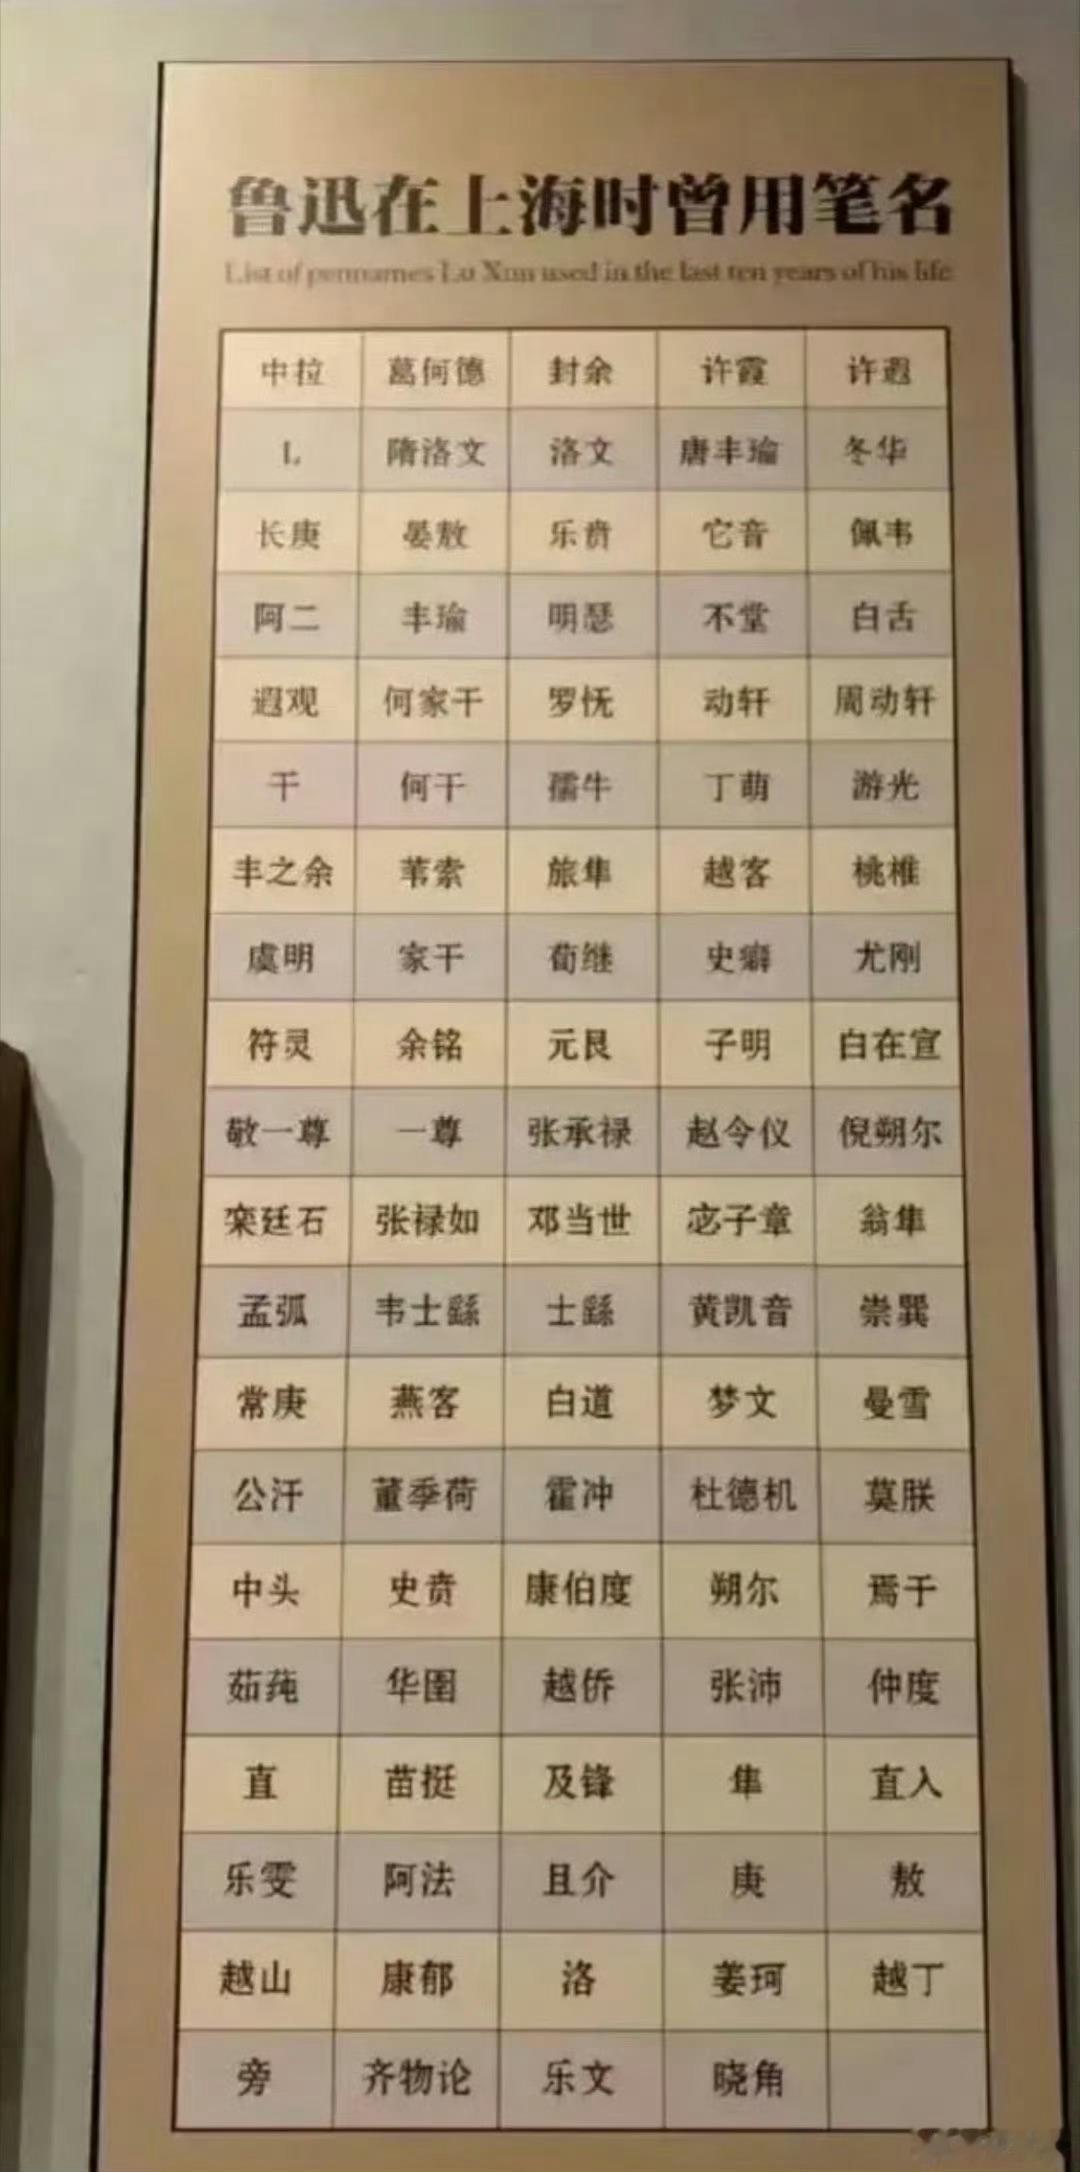 鲁迅在上海时曾用笔名
List of pennames Lu Xun used in the last ten years of his life
中拉 葛何德 封余 许霞 许遐
L. 隋洛文 洛文 唐丰瑜 冬华
长庚 晏敖 乐贲 它音 佩韦
阿二 丰瑜 明瑟 不堂 白舌
遐观 何家干 罗怃 动轩 周动轩
干 何干 孺牛 丁萌 游光
丰之余 苇索 旅隼 越客 桃椎
虞明 家干 荀继 史癖 尤刚
符灵 余铭 元艮 子明 白在宣
敬一尊 一尊 张承禄 赵令仪 倪朔尔
栾廷石 张禄如 邓当世 宓子章 翁隼
孟弧 韦士繇 士繇 黄凯音 崇巽
常庚 燕客 白道 梦文 曼雪
公汗 董季荷 霍冲 杜德机 莫朕
中头 史贲 康伯度 朔尔 焉于
茹莼 华圉 越侨 张沛 仲度
直 苗挺 及锋 隼 直入
乐雯 阿法 且介 庚 敖
越山 康郁 洛 姜珂 越丁
旁 齐物论 乐文 晓角